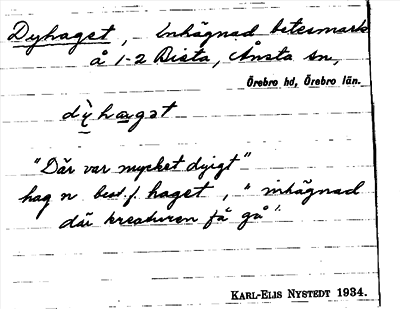 Dyhaget, Inhägnad betesmark
å 1-2 Bista, Ånsta sn,
Örebro hd, Örebro län.
dỳhagət
"Där var mycket dyigt"
hag n best. f. haget, "inhägnad
där kreaturen få gå".
KARL-ELIS NYSTEDT 1934.